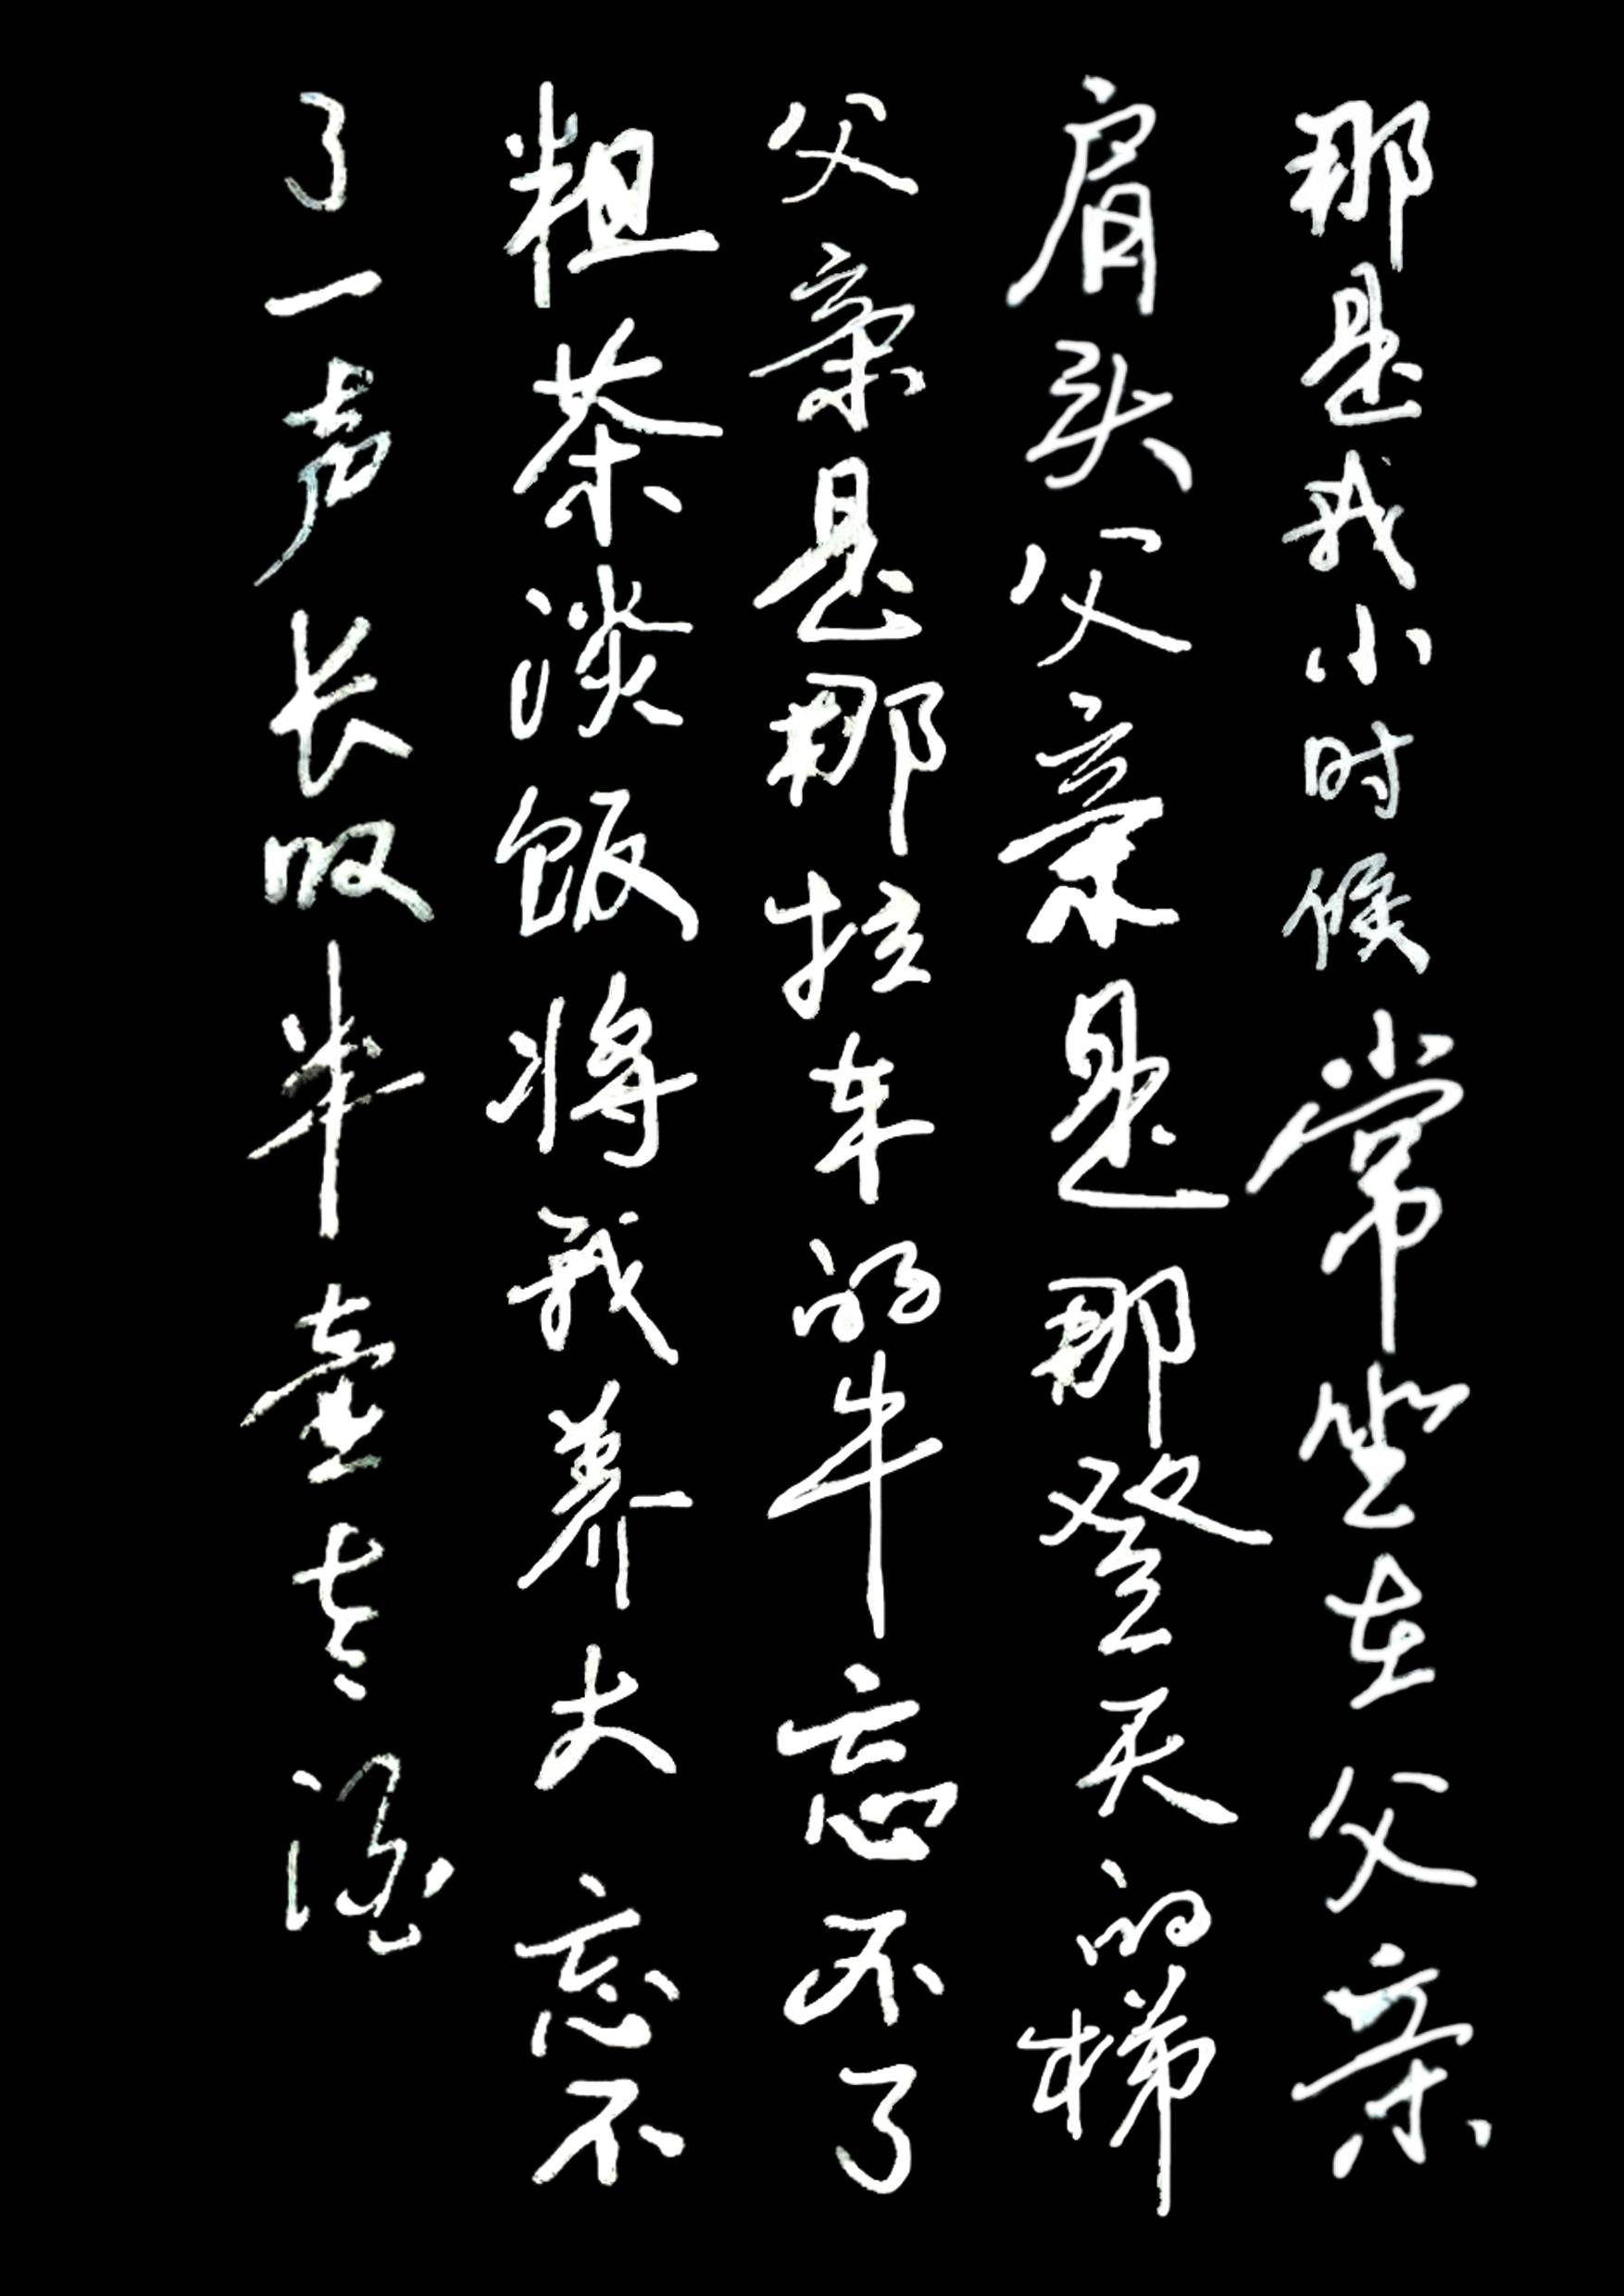 那是我小时候常坐在父亲
肩头父亲是那登天的梯
父亲是那拉车的牛忘不了
粗茶淡饭将我养大忘不
了一声长叹半壶老酒